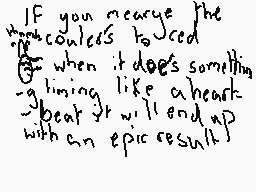 IF you mearge the
couler's to red
when it does somethin
-g timing like a heart
-beat it will end up
with an epic result